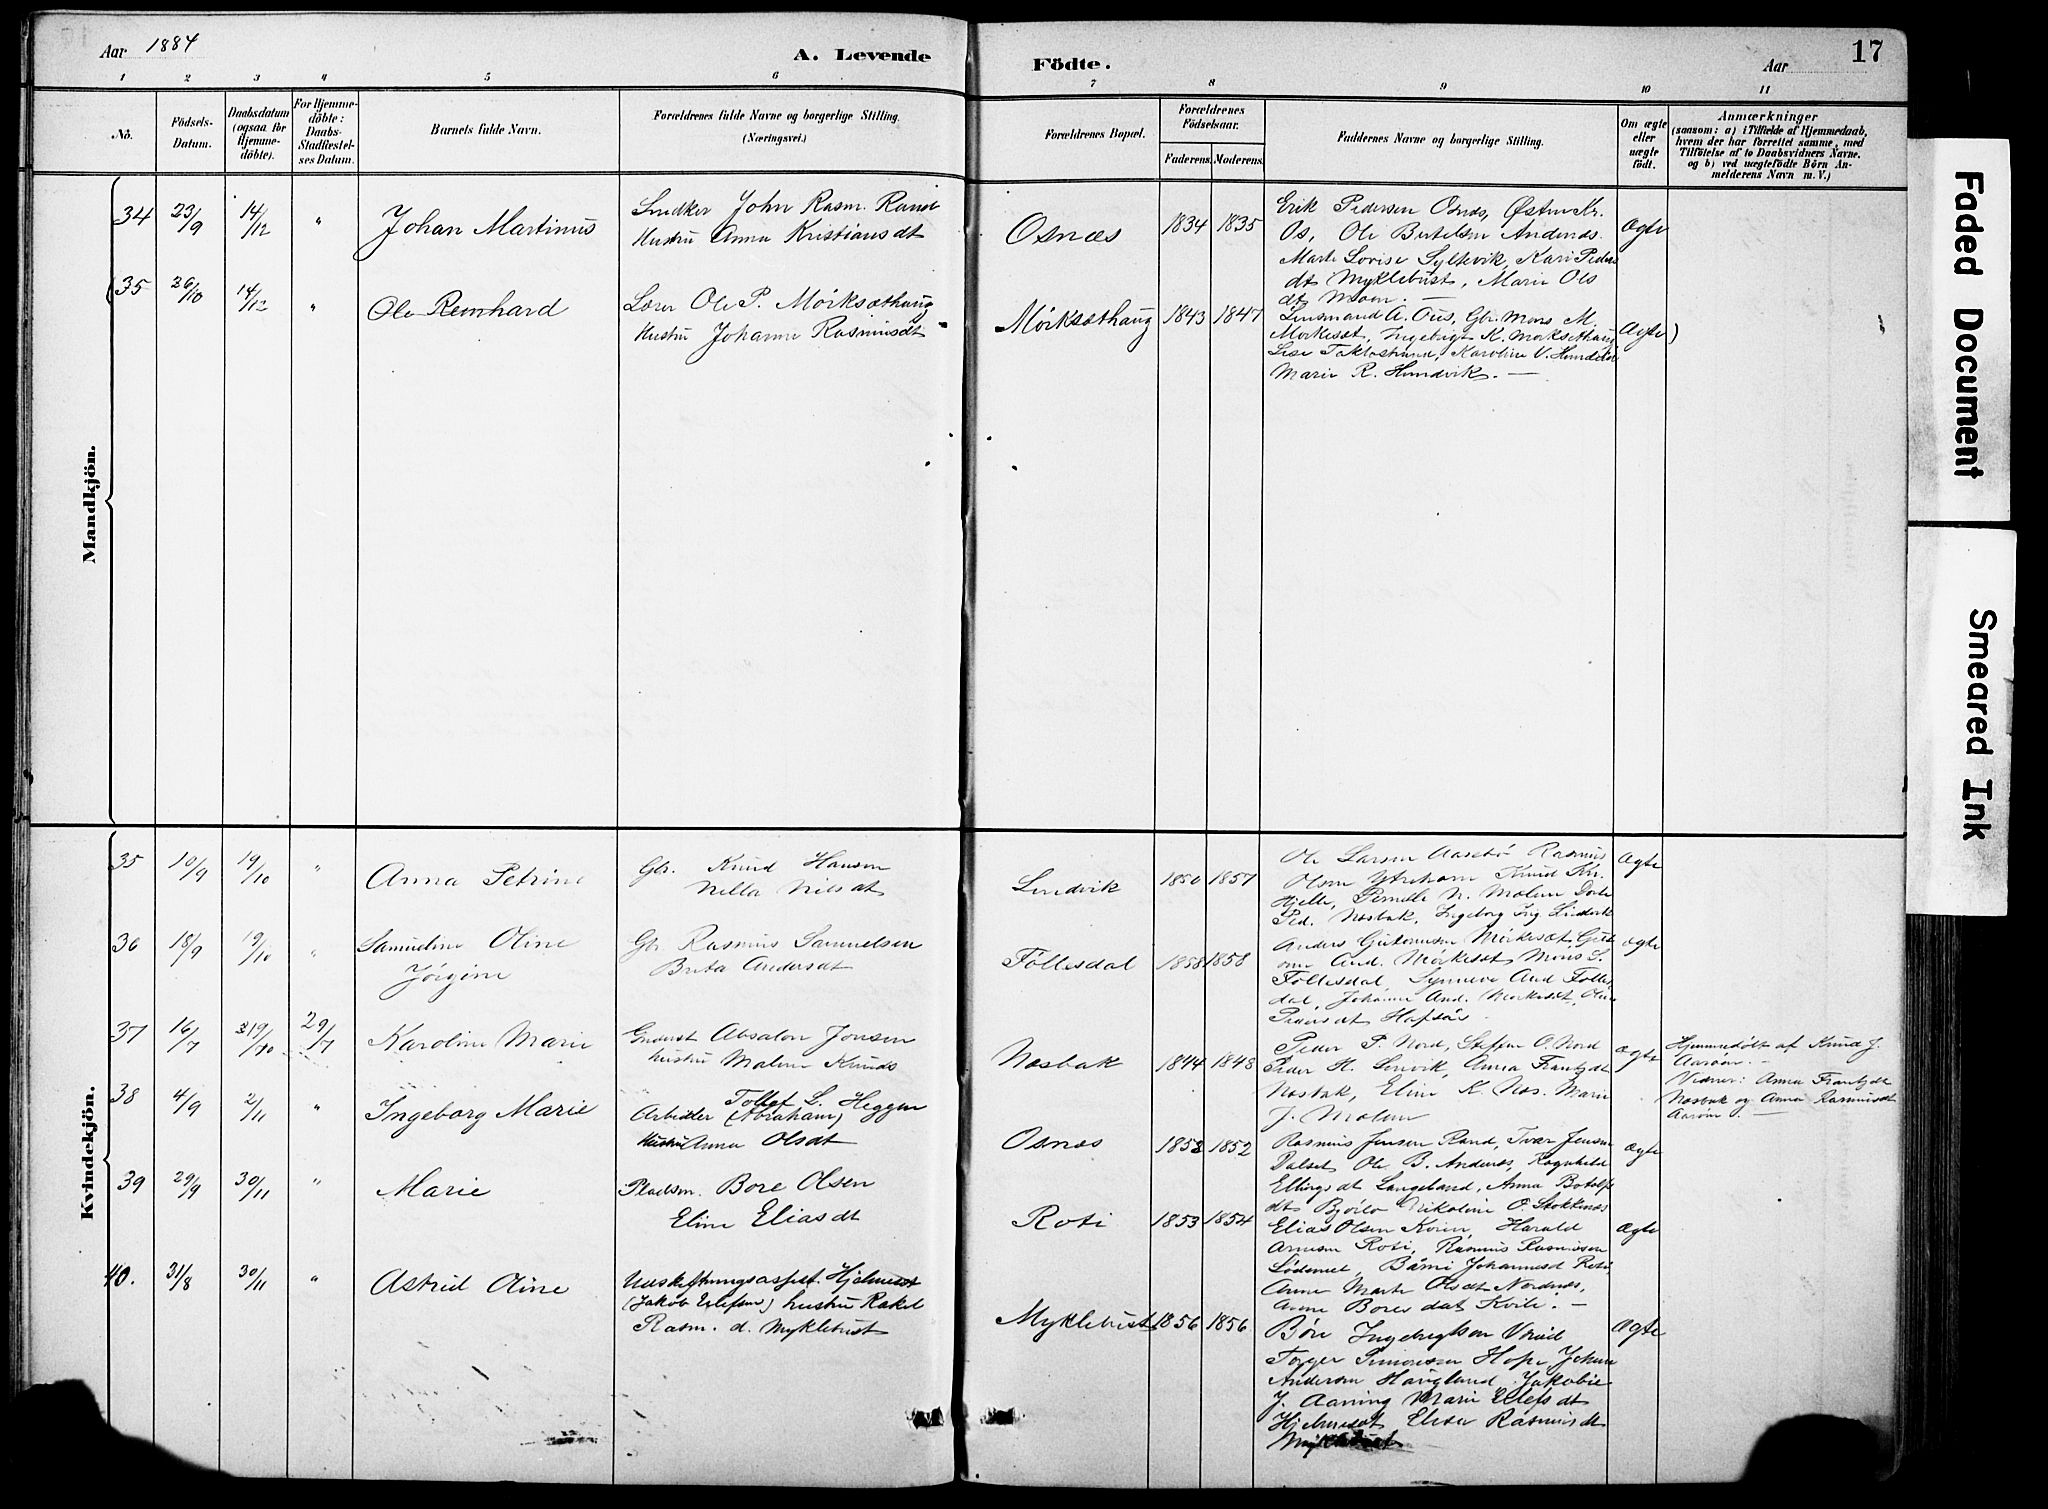 Aar 1884
A. Levende
Födte.
Aar
17
1 2 3 4 5 6 7 8 9 10 11
No.
Födsels-
Datum.
Daabsdatum
(ogsaa for
Hjemme-
döbte).
For Hjemme-
döbte:
Daabs-
Stadfestel-
ses Datum.
Barnets fulde Navn.
Forældrenes fulde Navne og borgerlige Stilling.
(Næringsvei.)
Forældrenes Bopæl.
Forældrenes
Födselsaar.
Faderens. Moderens.
Faddernes Navne og borgerlige Stilling.
Om ægte
eller
uægte
födt.
Anmærkninger
(saasom: a) i Tilfælde af Hjemmedaab,
hvem der har forrettet samme, med
Tilföielse af to Daabsvidners Navne,
og b) ved uægtefödte Börn An-
melderens Navn m. V.)
Mandkjön.
34 23/9 14/12 "
Johan Martinus
Snedker John Rasm. Rand
Hustru Anna Kristiansdt
Osnæs
1834 1835
Erik Pedersen Osnæs, Østen Kr.
Os, Ole Bertelsen Andenæs
Marte Lovise Syltevik, Kari Peders
dt Myklebust, Marie Ols
dt Moen. —
Ægte
35 26/10 14/12 "
Ole Reinhard
Lærer Ole P. Mörksæthaug
Hustru Johanne Rasmusdt
Mörksæthaug
1843 1847
Lensmand A. Ous, Gbr. Mons M.
Mörkeset, Ingebrigt K. Mörksethaug
Lise Taklostrand, Karoline V. Hundeide
Marie R. Hundvik. —
Ægte)
Kvindekjön.
35 10/9 19/10 "
Anna Petrine
Gbr. Knud Hansen
Nille Nilsdt
Lindvik
1850 1857
Ole Larsen Aasebö Rasmus
Olsen Ytrehorn Knud Kr.
Hjelle, Pernille N. Malen Dorte
Ped. Næsbak, Ingeborg Ing. Lindvik
Ægte
36 18/9 19/10 "
Samueline Oline
Jörgine
Gbr Rasmus Samuelsen
Brita Andersdt
Föllesdal
1858 1858
Anders Guttormsen Mörkeset, Gutt
orm And. Mörkeset Mons S.
Föllesdal, Synneve And Följes
dal, Johanne And. Mörkeset, Oline
Pedersdt Hopsör.
ægte
37 16/7 19/10 29/7
Karoline Marie
Inderst Absalon Jonsen
hustru Malene Knuds
Næsbak
1844 1848
Peder P. Nord, Steffen O. Nord
Peder H. Lenvik, Anna Frantzdt
Næsbak, Eline K. Næs. Marie
J. Malen
ægte
Hjemmedöbt af Knud J.
Aaröen. —
Vidner: Anna Frantzdt
Næsbak og Anna Rasmusdt
Aaröen. —
38 4/9 2/11 "
Ingeborg Marie
Tollef L. Heggen
Arbeider (Abraham)
Hustru Anna Olsdt
Osnæs
1852 1852
Rasmus Jensen Rand, Ivar Jensen
Dalset Ole B. Andenæs, Ragnhild
Ellingsdt Langeland, Anna Botolfs
dt Björlo Nikoline O. Stokkenæs
ægte
39 29/9 30/11 "
Marie
Pladsm. Bore Olsen
Eline Eliasdt
Roti
1853 1854
Elias Olsen Kvien, Harald
Arnesen Roti, Rasmus Rasmussen
Lödemel, Johannesdt Roti
Anne Marte Olsdt Nordnæs,
Anne Boresdat Kvile. —
Ægte
40. 31/8 30/11 "
Astrid Oline
Udskiftningsassist. Hjelmeset
(Jakob Ellefsen) hustru Rakel
Rasm. d. Myklebust
Myklebust
1856 1856
Böre Ingebrigtsen
Torger Simonsen Hope Johan
Andersen Haugland Jakobine
J. Aaning Marie Ellefsdt
Hjelmeset Elise Rasmusdt
Myklebust
Ægte
Faded Document
Smeared Ink